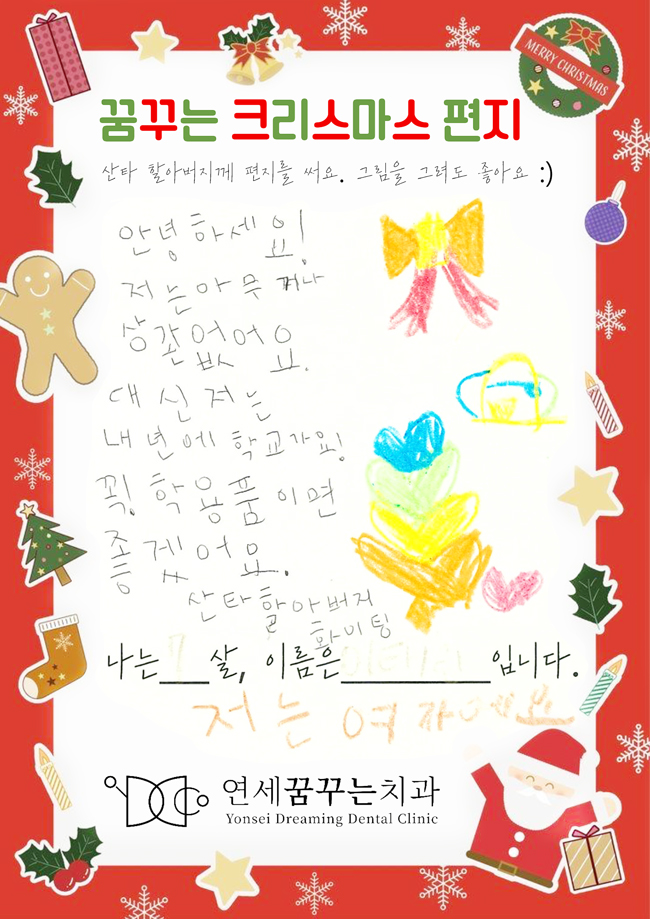 MERRY CHRISTMAS
꿈꾸는 크리스마스 편지
산타 할아버지께 편지를 써요. 그림을 그려도 좋아요 :)
안녕하세요!
저는아무꺼나
상관없어요.
대신저는
내년에 학교가요!
꼭! 학용품이면
좋겠어요.
산타할아버지
화이팅
나는 7 살, 이름은 입니다.
저는 여자에요
연세꿈꾸는치과
Yonsei Dreaming Dental Clinic